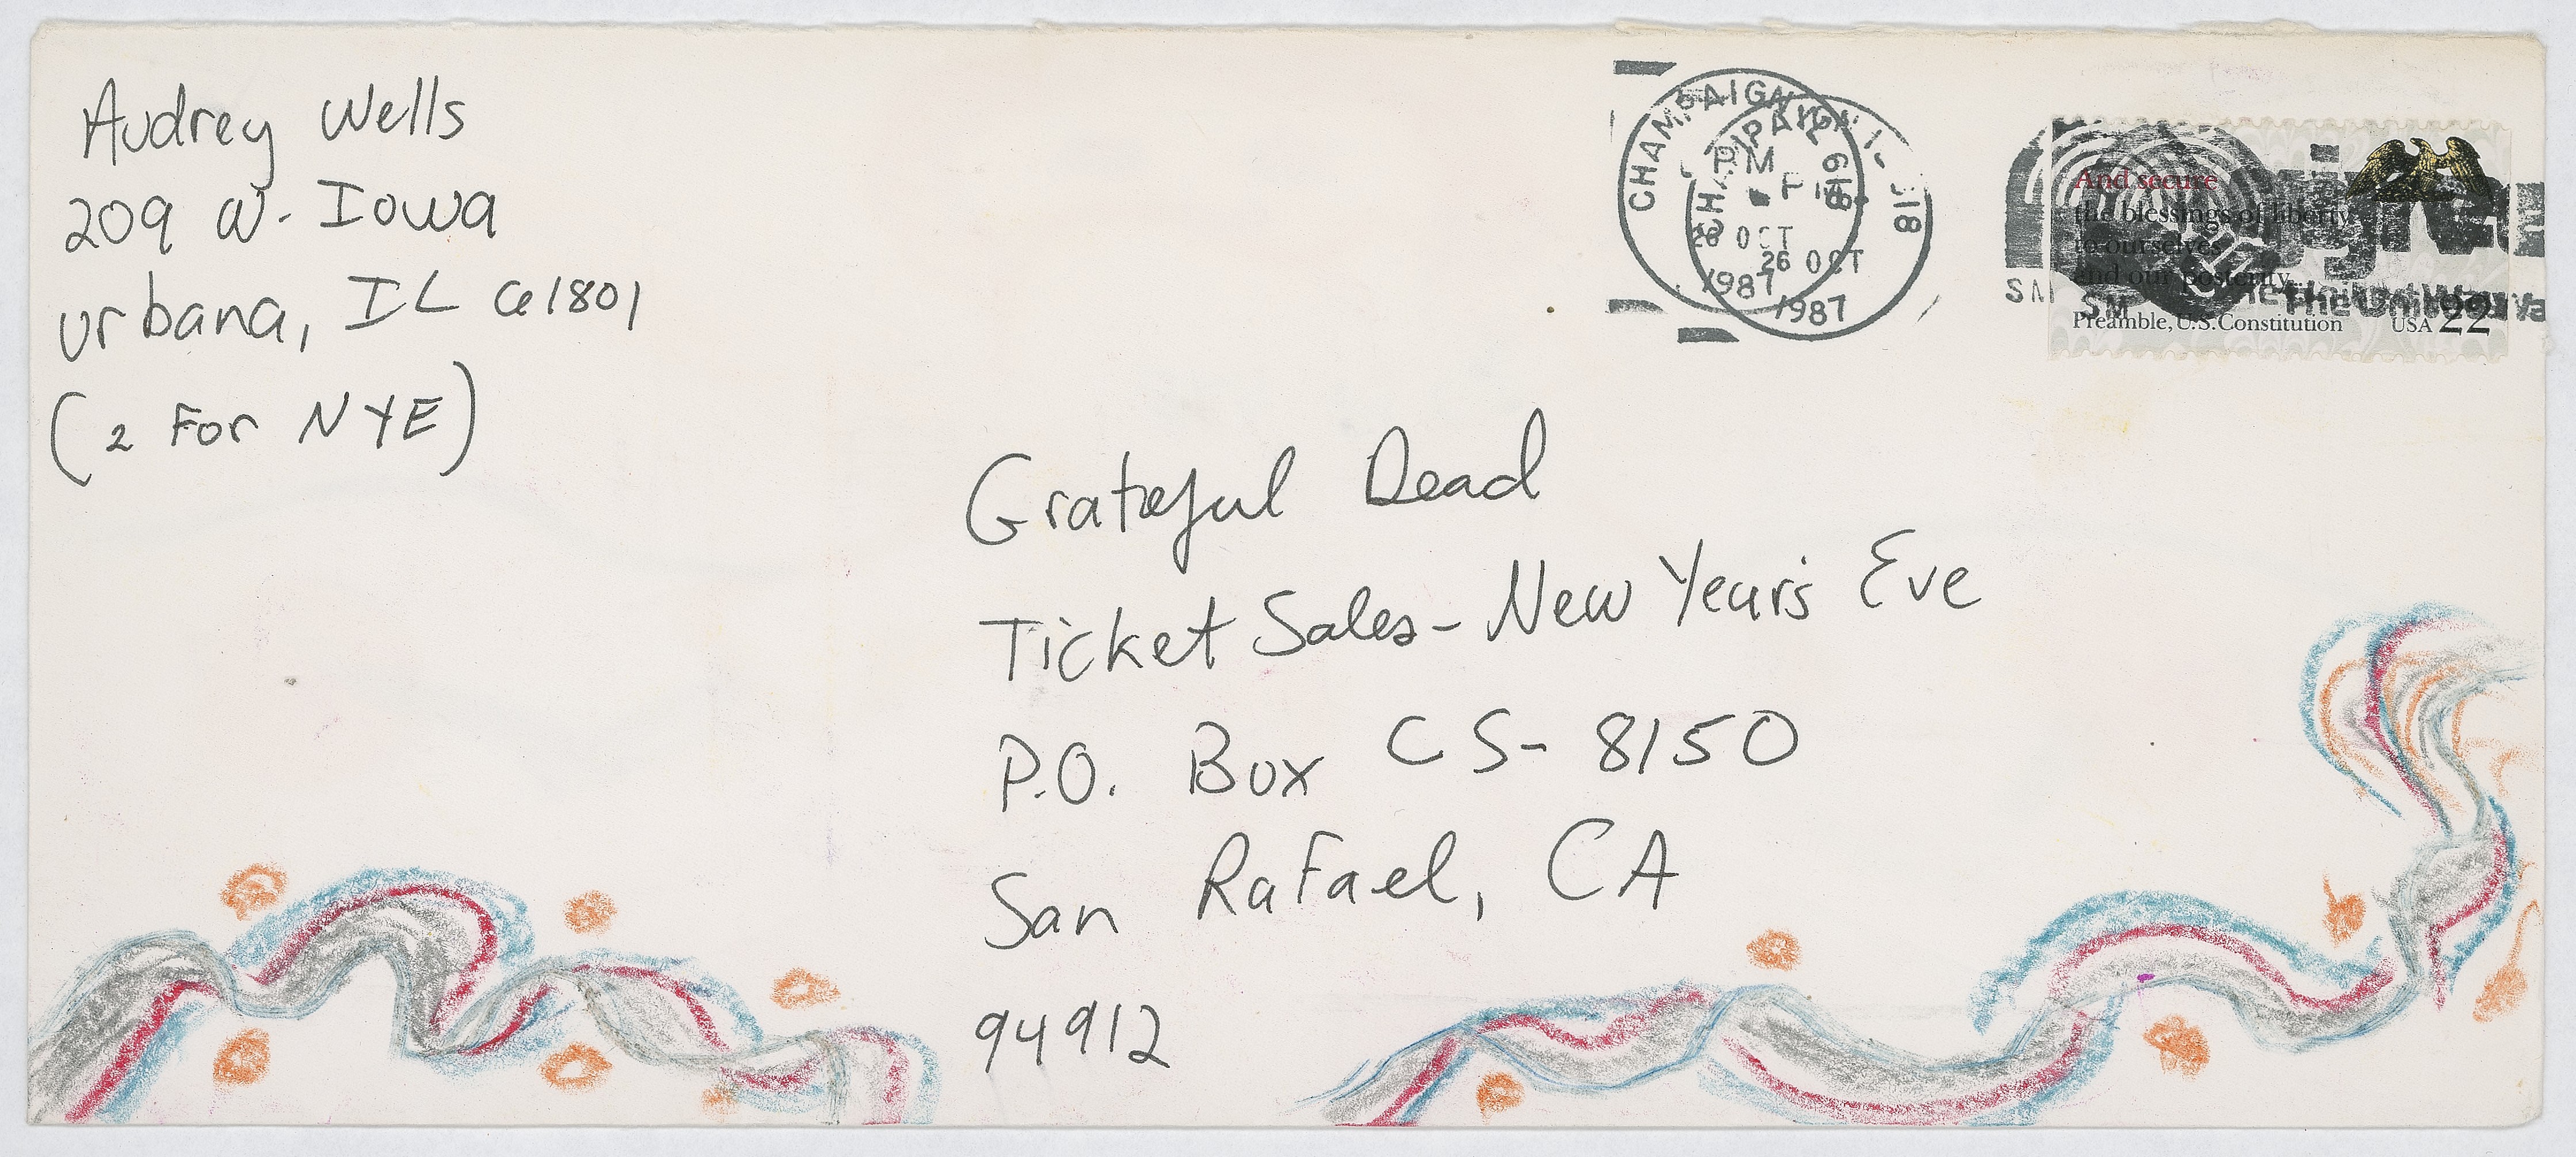 Audrey Wells
209 W. Iowa
Urbana, IL 61801
(2 For NYE)
CHAMPAIGN, IL 618
PM
26 OCT
1987
CHAMPAIGN IL 618
PM
26 OCT
1987
And secure
the blessings of liberty
to ourselves
and our posterity.
Preamble, U.S. Constitution USA 22
SM
SM
The United Way
Grateful Dead
Ticket Sales - New Year's Eve
P.O. Box CS- 8150
San Rafael, CA
94912